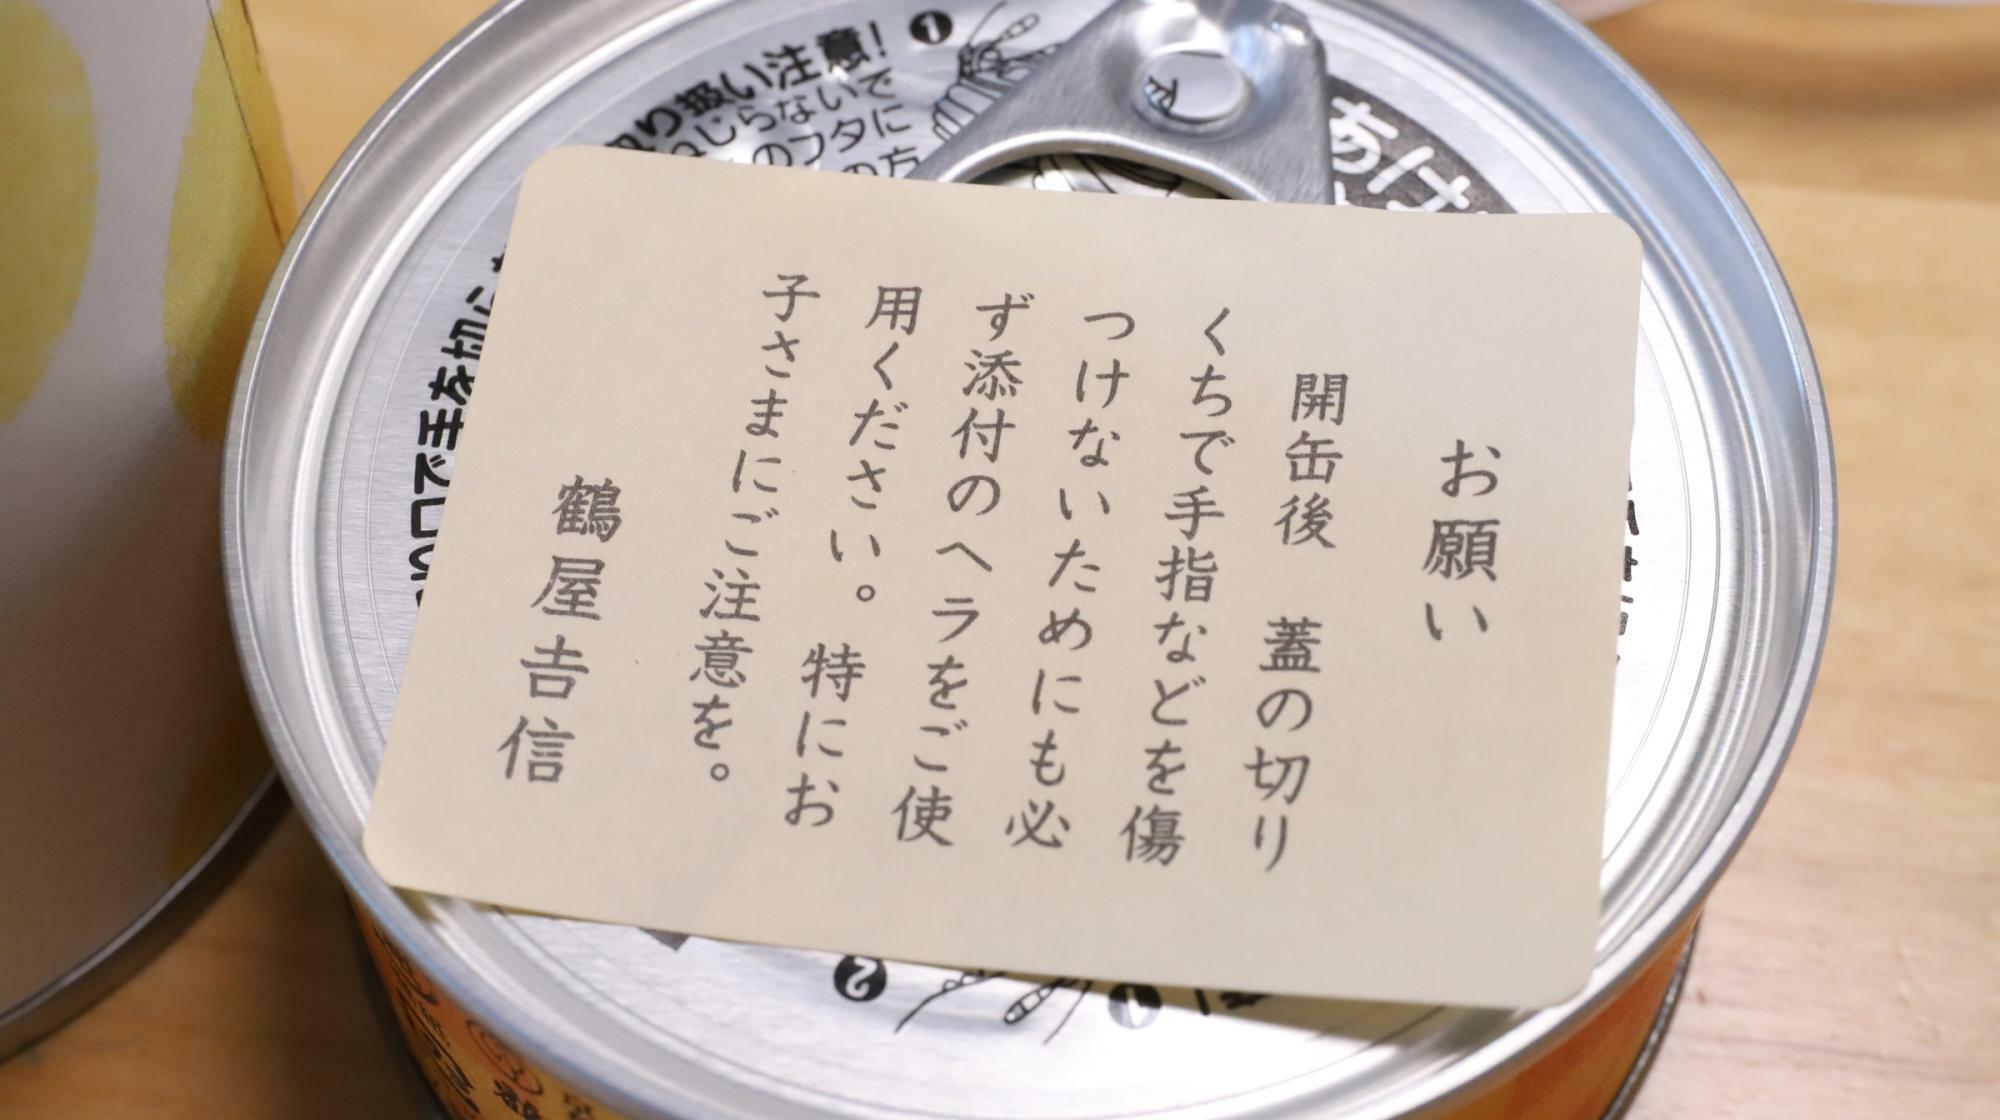 お願い
開缶後　蓋の切り
くちで手指などを傷
つけないためにも必
ず添付のヘラをご使
用ください。特にお
子さまにご注意を。
鶴屋𠮷信
り扱い注意!
じらないで
のフタに
の方
❶
あけ
口で手を切
❷